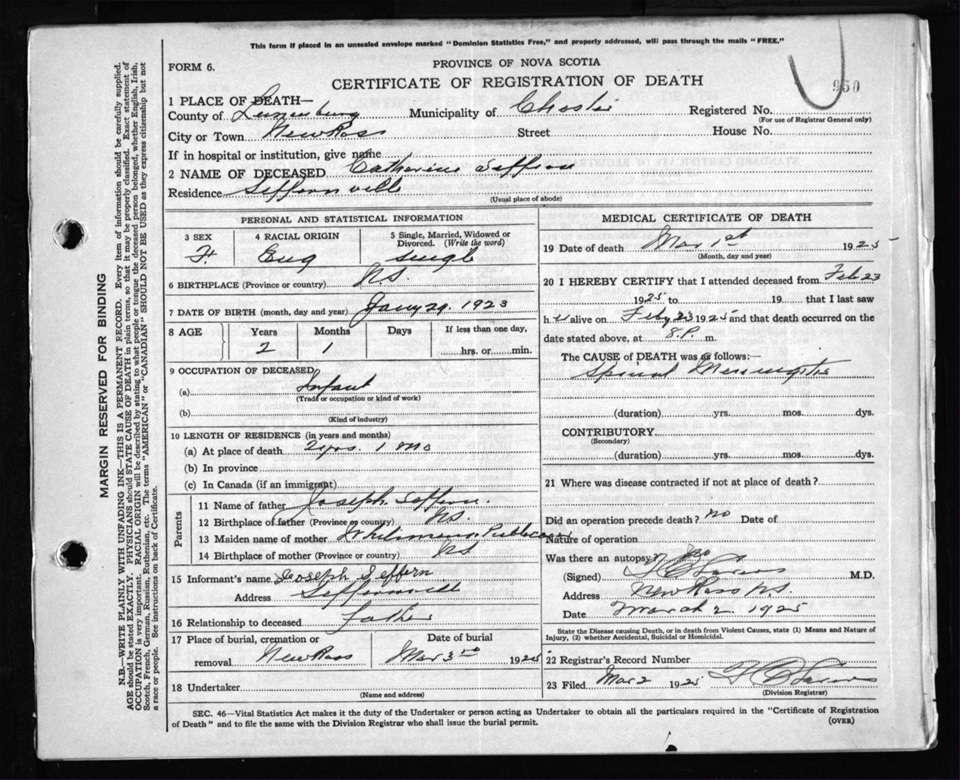 This form if placed in an unsealed envelope marked "Dominion Statistics Free," and properly addressed, will pass through the mails "FREE."
FORM 6.
PROVINCE OF NOVA SCOTIA
950
CERTIFICATE OF REGISTRATION OF DEATH
1 PLACE OF DEATH—
County of Lunenburg Municipality of Chester Registered No.
(For use of Registrar General only)
City or Town New Ross Street House No.
If in hospital or institution, give name
2 NAME OF DECEASED Catharine Seffern
Residence Seffernville
(Usual place of abode)
PERSONAL AND STATISTICAL INFORMATION
3 SEX 4 RACIAL ORIGIN 5 Single, Married, Widowed or Divorced. (Write the word)
F. Eng Single
6 BIRTHPLACE (Province or country) N.S.
7 DATE OF BIRTH (month, day and year) Jany 29, 1923
8 AGE Years Months Days If less than one day,
2 1 hrs. or min.
9 OCCUPATION OF DECEASED
(a) Infant
(Trade or occupation or kind of work)
(b)
(Kind of industry)
10 LENGTH OF RESIDENCE (in years and months)
(a) At place of death 2 yrs. 1 Mo
(b) In province
(c) In Canada (if an immigrant)
Parents
11 Name of father Joseph Seffern.
12 Birthplace of father (Province or country) N.S.
13 Maiden name of mother
14 Birthplace of mother (Province or country) N.S
15 Informant's name Joseph Seffern
Address Seffernville
16 Relationship to deceased Father
17 Place of burial, cremation or removal New Ross Date of burial Mar 3rd 1925
18 Undertaker
(Name and address)
MEDICAL CERTIFICATE OF DEATH
19 Date of death Mar 1st 1925
(Month, day and year)
20 I HEREBY CERTIFY that I attended deceased from Feb 23
1925 to 19 that I last saw
h alive on Feby 23 1925 and that death occurred on the
date stated above, at 8 P. m.
The CAUSE of DEATH was as follows:—
Spinal Meningitis
(duration) yrs. mos. dys.
CONTRIBUTORY
(Secondary)
(duration) yrs. mos. dys.
21 Where was disease contracted if not at place of death?
Did an operation precede death? no Date of
Nature of operation
Was there an autopsy? No
(Signed) M.D.
Address New Ross N.S.
Date March 2 1925
State the Disease causing Death, or in death from Violent Causes, state (1) Means and Nature of Injury, (2) whether Accidental, Suicidal or Homicidal.
22 Registrar's Record Number
23 Filed Mar 2 1925
(Division Registrar)
SEC. 46—Vital Statistics Act makes it the duty of the Undertaker or person acting as Undertaker to obtain all the particulars required in the "Certificate of Registration
of Death" and to file the same with the Division Registrar who shall issue the burial permit.
(OVER)
MARGIN RESERVED FOR BINDING
N.B.—WRITE PLAINLY WITH UNFADING INK—THIS IS A PERMANENT RECORD. Every item of information should be carefully supplied.
AGE should be stated EXACTLY. PHYSICIANS should STATE CAUSE OF DEATH in plain terms, so that it may be properly classified. Exact statement of
OCCUPATION is very important. RACIAL ORIGIN will be described by stating to what people or tongue the deceased person belonged, whether English, Irish,
Scotch, French, German, Russian, Ruthenian, etc. The terms "AMERICAN" or "CANADIAN" SHOULD NOT BE USED as they express citizenship but not
a race or people. See instructions on back of Certificate.